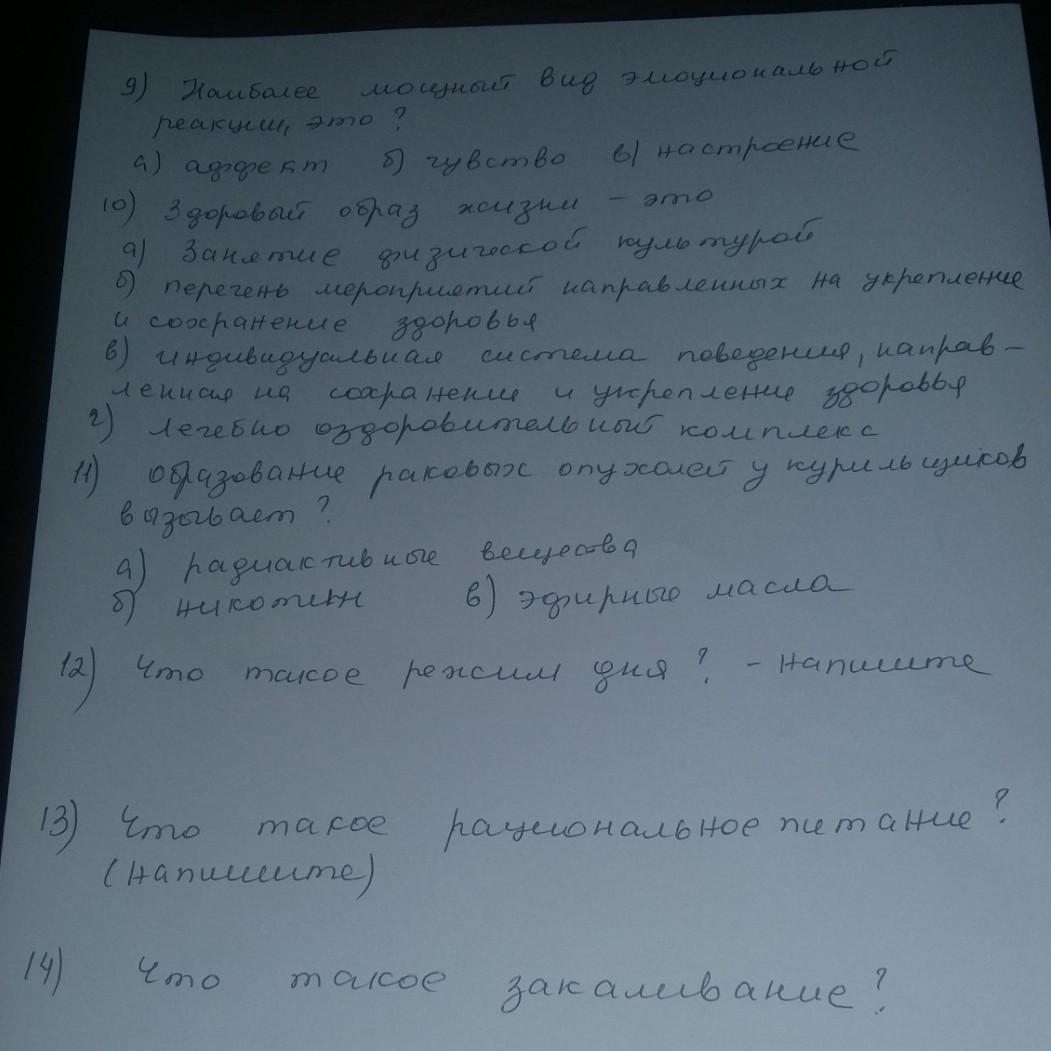 9) Наиболее мощный вид эмоциональной
реакции, это ?
а) аффект б) чувство в) настроение
10) Здоровый образ жизни - это
а) Занятие физической культурой
б) перечень мероприятий направленных на укрепление
и сохранение здоровья
в) индивидуальная система поведения, направ-
ленная на сохранение и укрепление здоровья
г) лечебно оздоровительный комплекс
11) образование раковых опухолей у курильщиков
вызывает ?
а) радиактивные вещества
б) никотин в) эфирные масла
12) Что такое режим дня ? - напишите
13) Что такое рациональное питание ?
(напишите)
14) Что такое закаливание ?